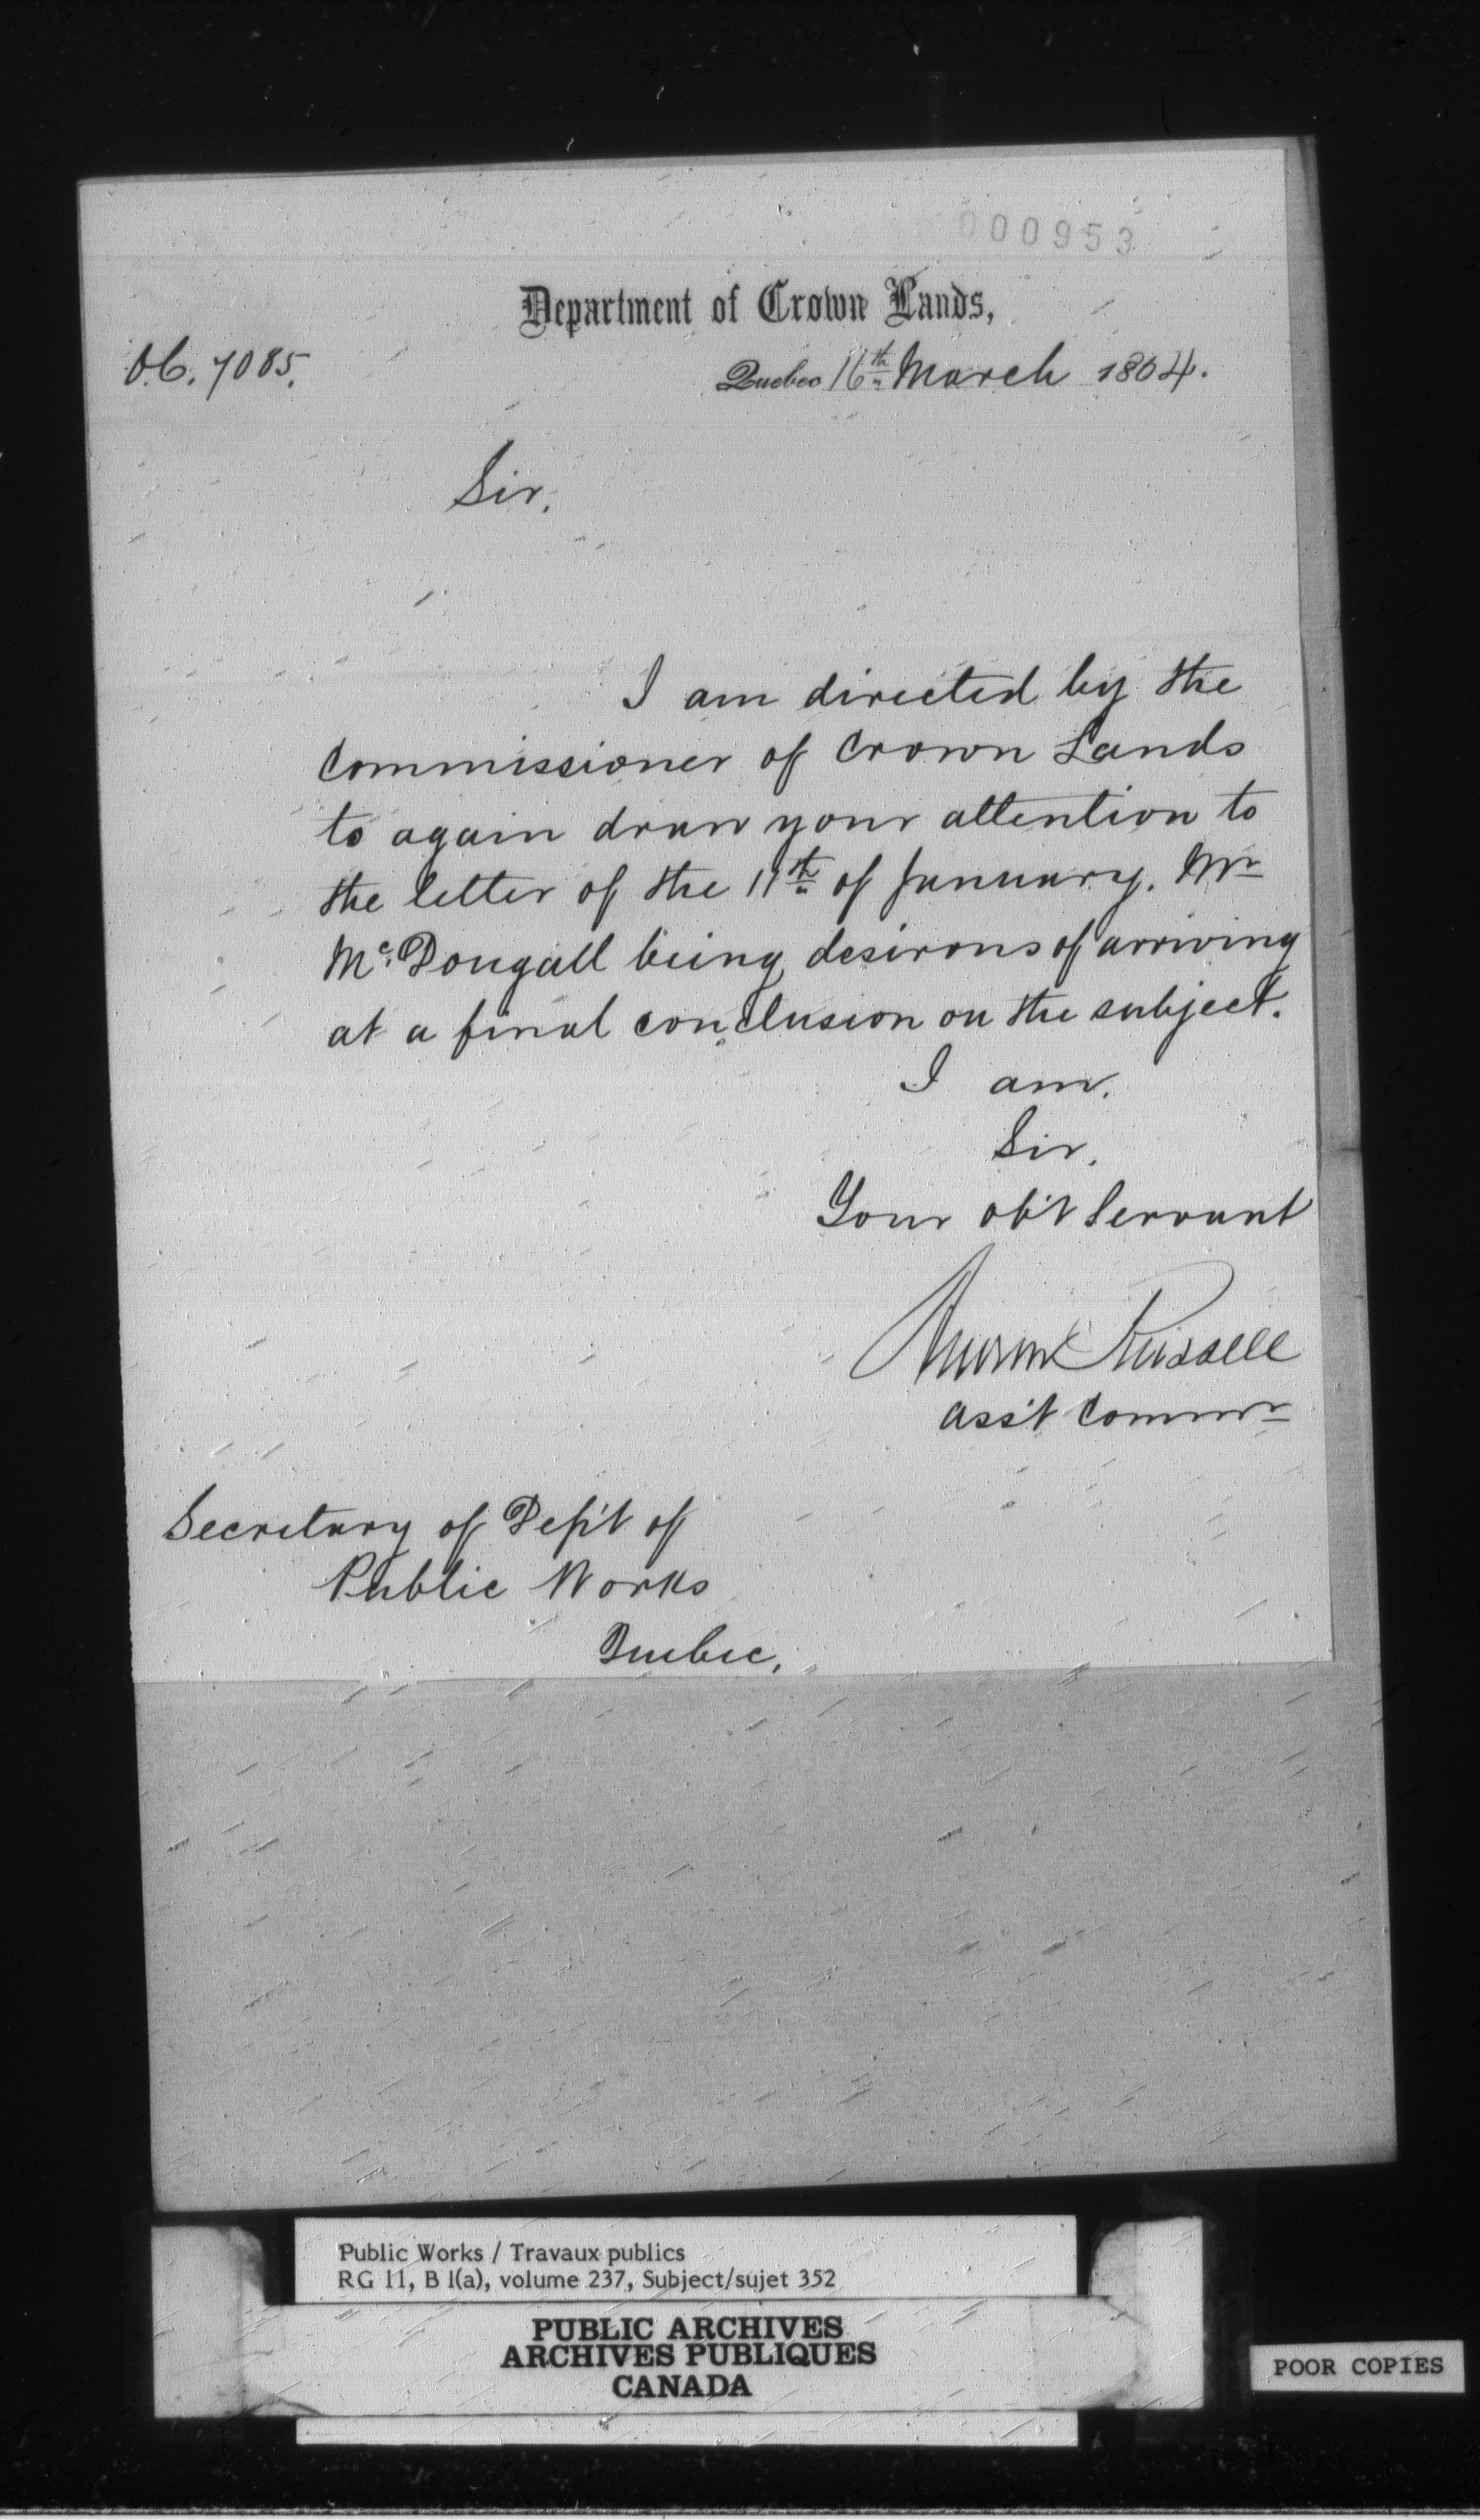 000953
Department of Crown Lands,
O.C. 7085.
Quebec 16th March 1864.
Sir,
I am directed by the
Commissioner of Crown Lands
to again draw your attention to
the letter of the 11th of January. Mr
McDougall being desirous of arriving
at a final conclusion on the subject.
I am,
Sir,
Your ob't Servant
Andrew Russell
Ass't Commr
Secretary of Dep't of
Public Works
Quebec,
Public Works / Travaux publics
RG 11, B 1(a), volume 237, Subject/sujet 352
PUBLIC ARCHIVES
ARCHIVES PUBLIQUES
CANADA
POOR COPIES